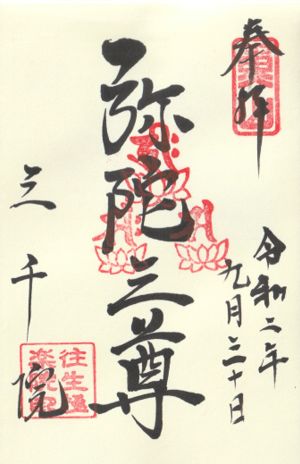 奉拝
令和二年
九月三十日
弥陀三尊
三千院
往生極
楽院印